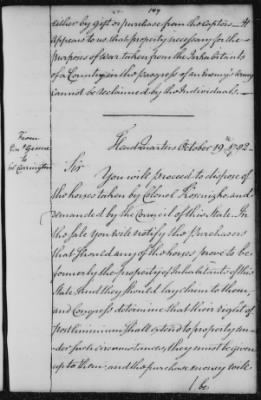 149
either by gift or purchase from the Captors — It
appears to us that property necessary for the
purposes of War taken from the Inhabitants
of a Country in the progress of an Enemy's Army
cannot be reclaimed by the Individuals. —
From
Gen.l Greene
to
Col Carrington
Head Quarters October 19th 1782 —
Sir
You will proceed to dispose of
the horses taken by Colonel Kosciuzko and
demanded by the Council of this State. In
the sale you will notify the purchasers
that should any of the horses prove to be
formerly the property of Inhabitants of this
State and they should lay claim to them,
and Congress determine that their right of
postliminium shall extend to property un-
der such circumstances, they must be given
up to them: and the purchase money will
be